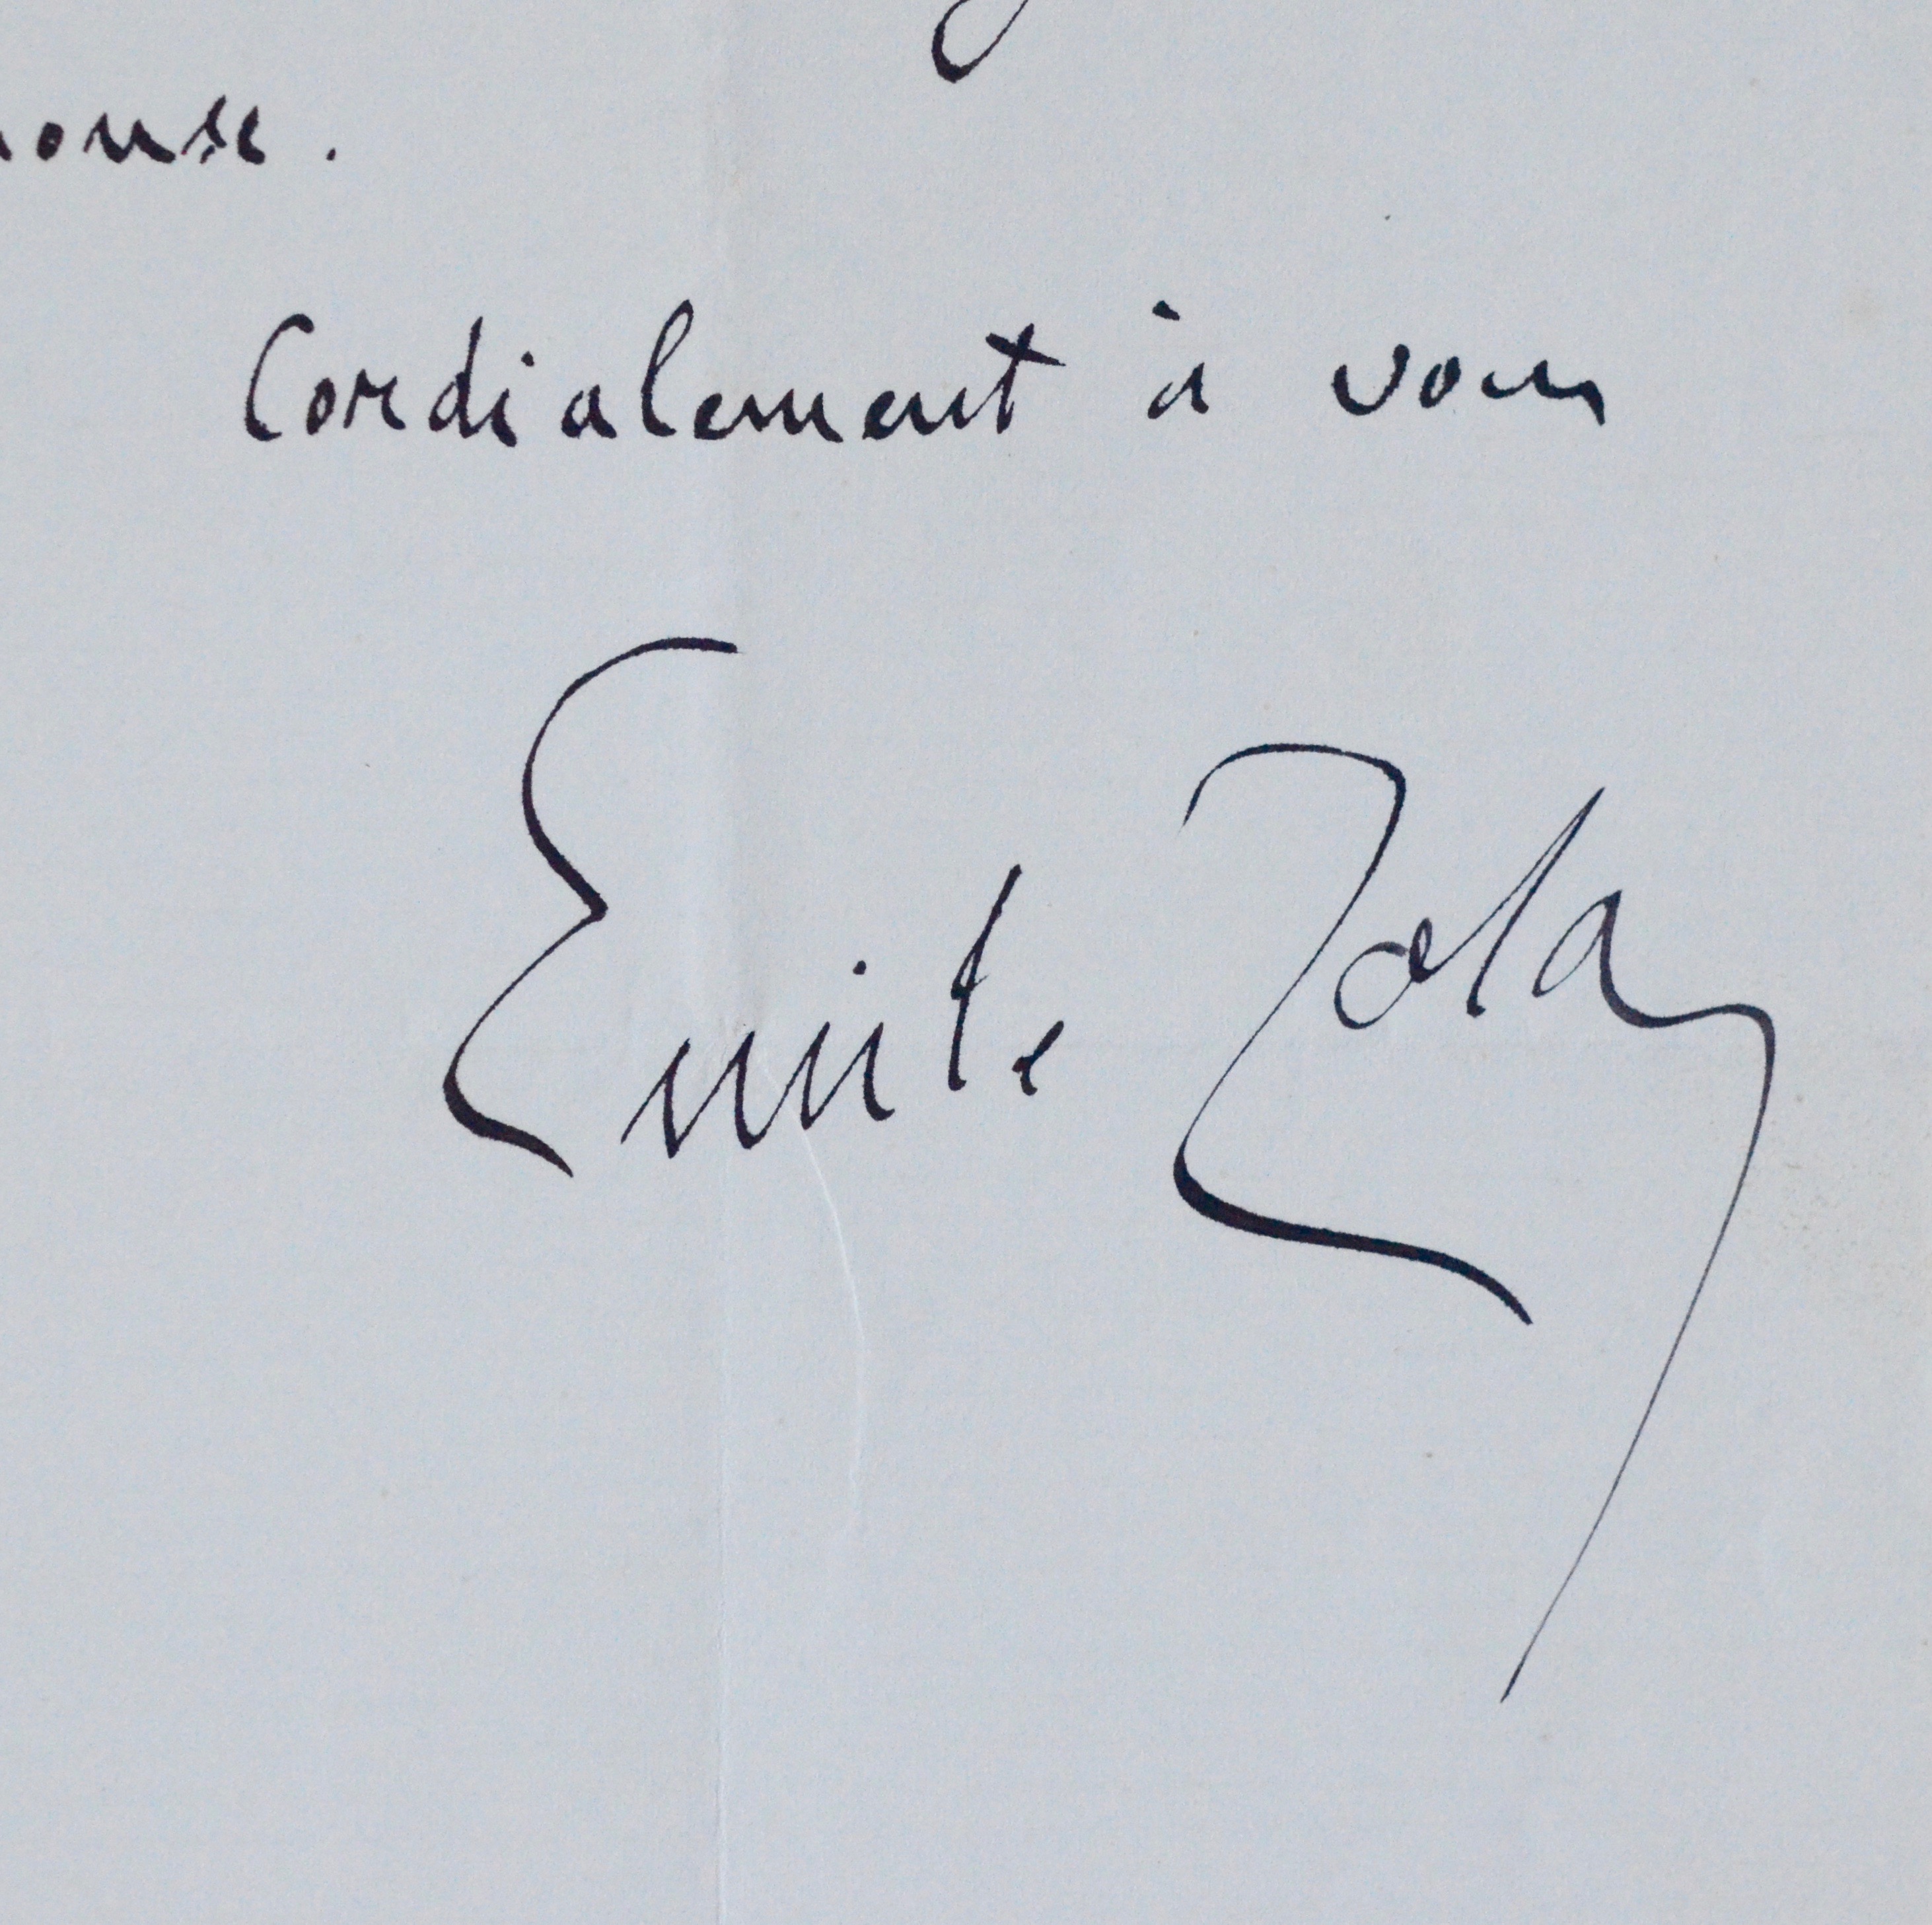 Cordialement à vous
Emile Zola